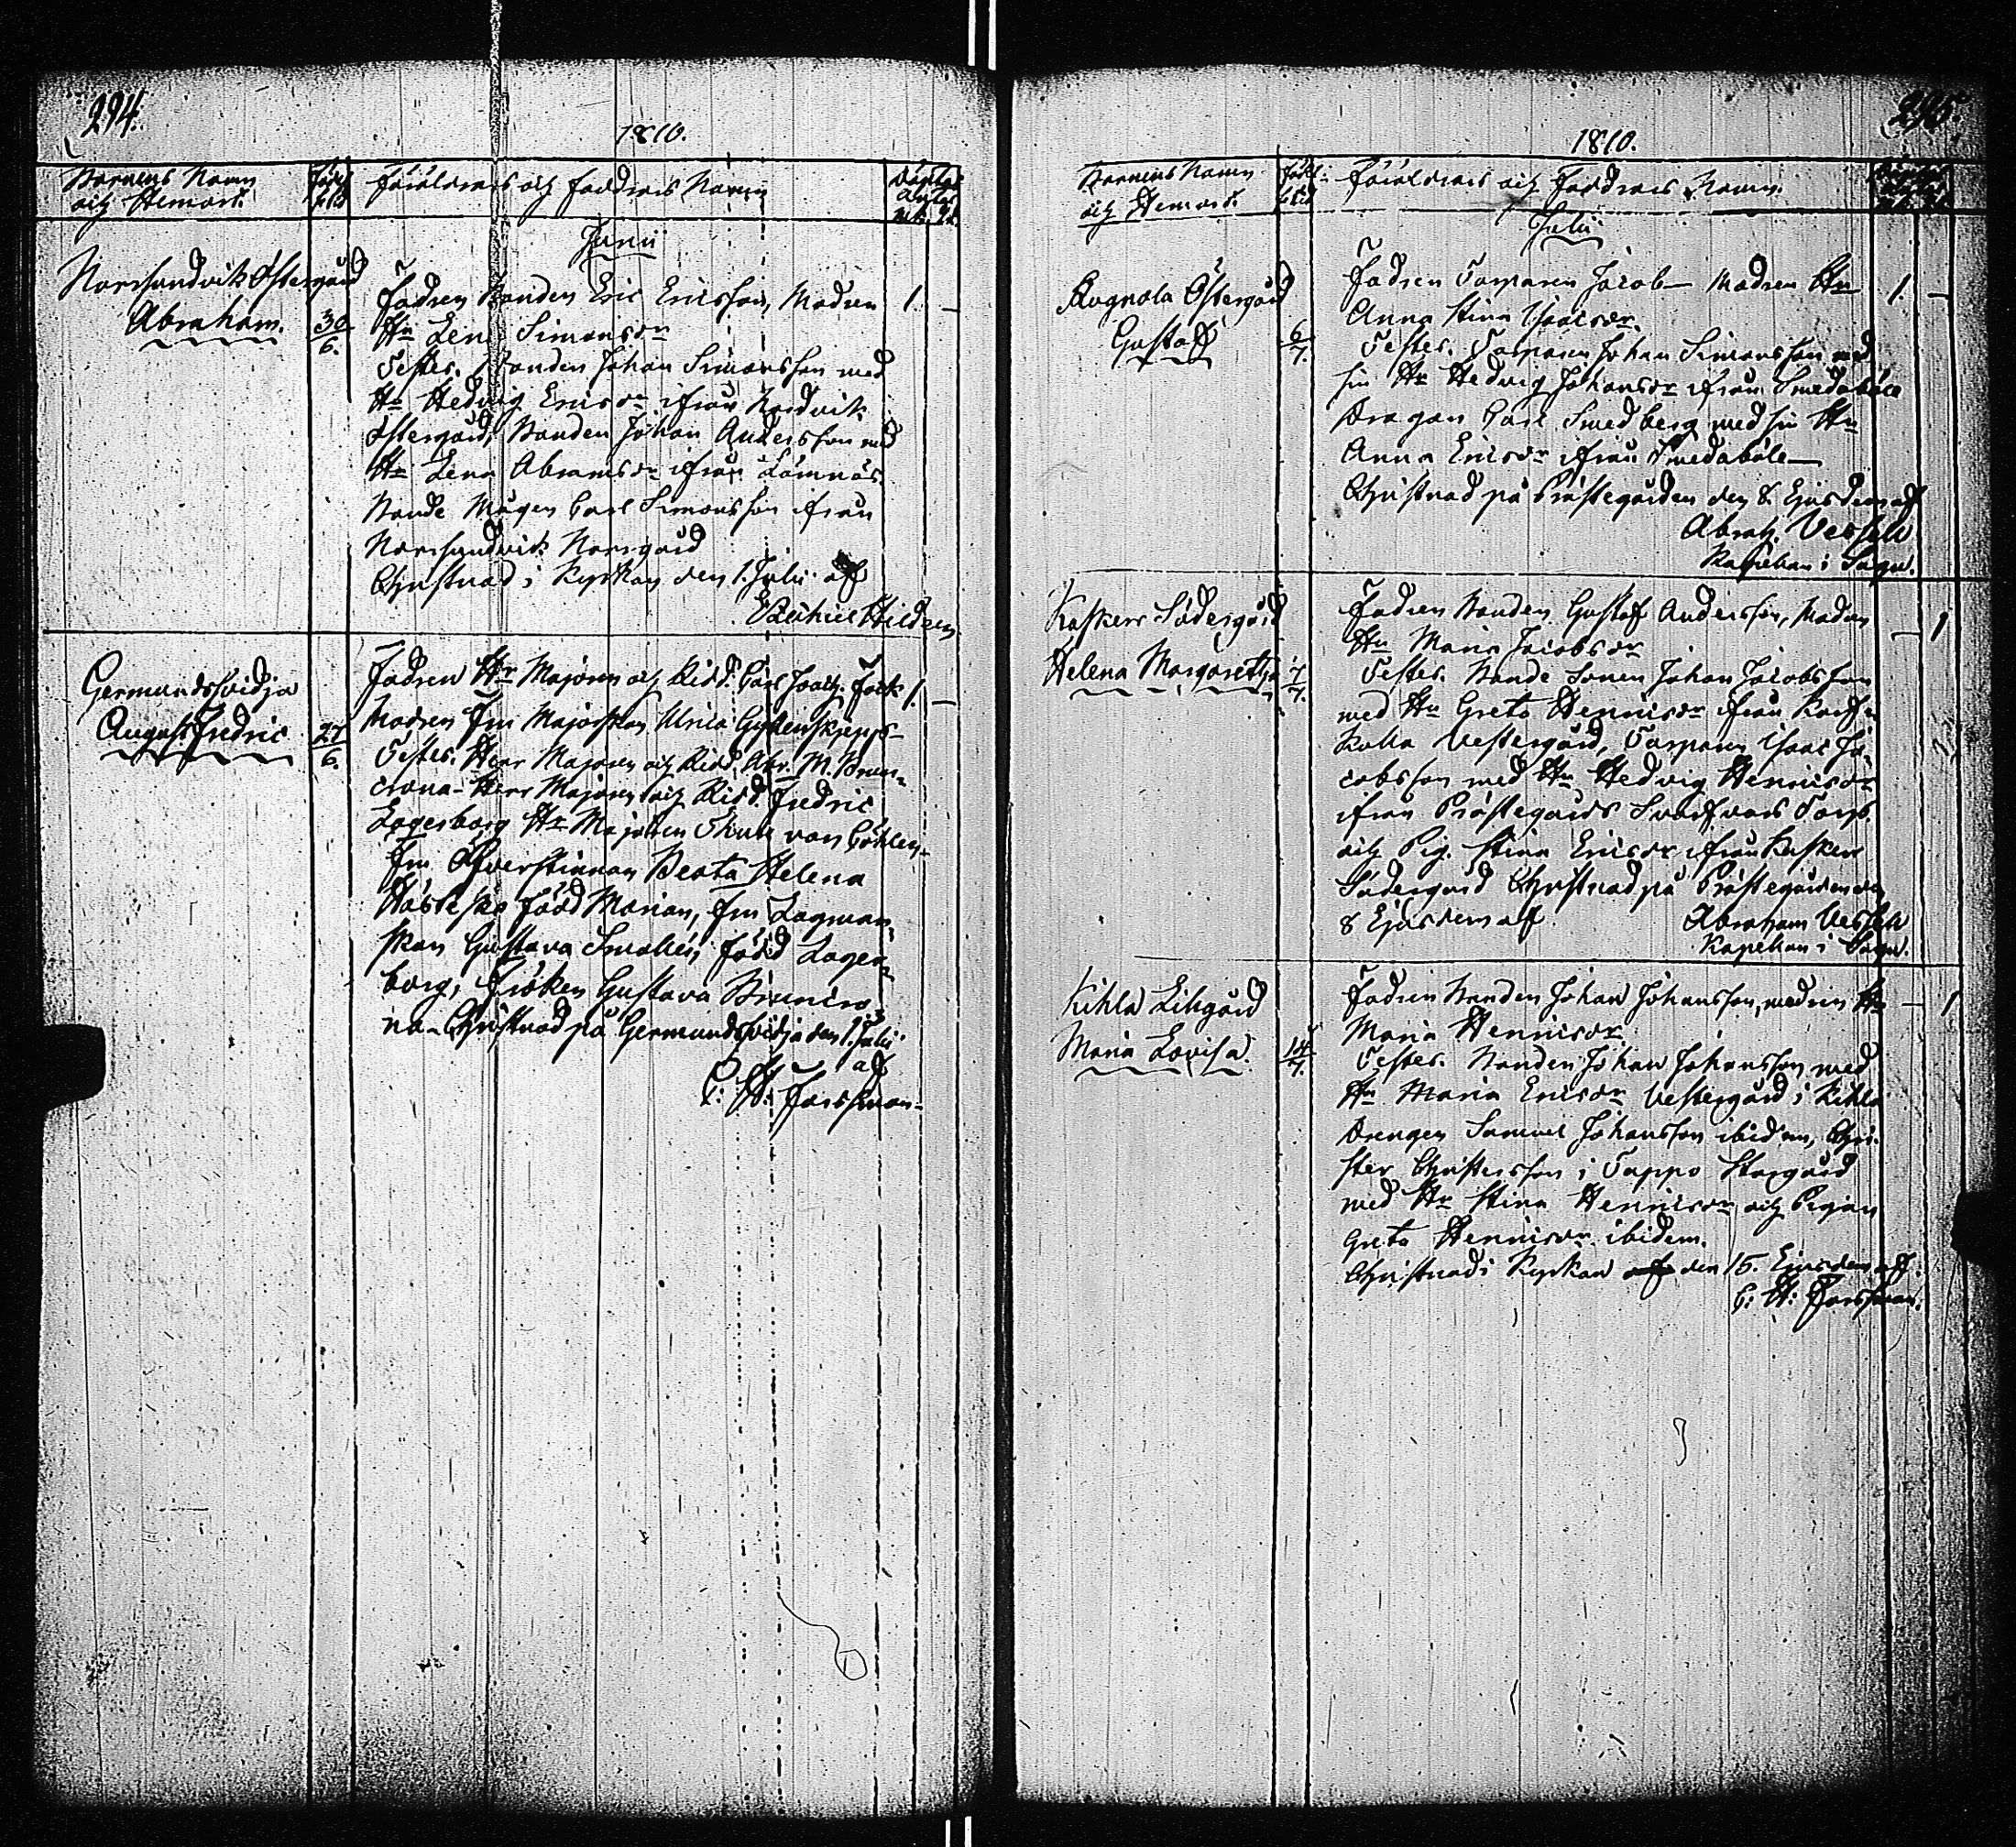 294.
1810.
Barnens Namn
och Hemort.
Föräldrars och Faddrars Namn
Junii
Norrsundvik Östergård
Abraham.
30/6.
Fadren Bonden Eric Ericsson, Modren
1. –
Hu Lena Simonsdr
Testes. Bonden Johan Simonsson med
Hu Hedvig Ericsdr ifrån Nordvik
Östergård, Bonden Johan Andersson med
Hu Lena Abramsdr ifrån Lämnäs
Bonde Mågen Carl Simonsson ifrån
Norrsundvik Norrgård
Christnad i Kyrkan den 1. Julii af
Ezechiel Hildeen
Germundsvidja
August Fredric
27/6.
Fadren Hr Majoren och Ridd. Carl Joach. Fock
1. –
Modren Fru Majorskan Ulrica Gyllenskepp
Testes. Herr Majoren och Ridd. Abr. M. Brun-
crona – Herr Majoren och Ridd. Fredric
Lagerborg Hr Majoren Thure von Cöhlen
Fru Öfverstinnan Beata Helena
född Morian, Fru Lagman-
skan Gustava född Lager-
borg, Fröken Gustava Bruncro
na – Christnad på Germundsvidja den 1. Julii
af
C: H: Forssman
295.
1810.
Barnens Namn
och Hemort.
Föräldrars och Faddrars Namn.
Julii
Rognola Östergård
Gustaf
6/7.
Fadren Torparen Jacob – Modren Hu
1. –
Anna Stina Isacsdr.
Testes. Torparen Johan Simonsson med
sin Hu Hedvig Johansdr ifrån Smedaböle
Dragon Carl Smedberg med sin Hu
Anna Ericsdr ifrån Smedaböle
Christnad på Prästegården den 8 Ejusdem af
Abrah. Vessell
Kapellan i Sagu.
Kaskerr Södergård
Helena Margaretha
7/7.
Fadren Bonden Gustaf Andersson, Modren
– 1
Hu Maria Jacobsdr
Testes. Bonde Sonen Johan Jacobsson
med Hu Greta Henricsdr ifrån Korf-
kulla Vestergård, Torparen Isaac Ja-
cobsson med Hu Hedvig Henricsdr
ifrån Prästegårds Svarfvars Torp
och Pig. Stina Ericsdr ifrån Kaskerr
Södergård Christnad på Prästegården den
8 Ejusdem af
Abraham Vessell
Kapellan i Sagu.
Kihla Lillgård
Maria Lovisa.
14/7.
Fadren Bonden Johan Johansson, modren Hu
– 1
Maria Henricsdr
Testes. Bonden Johan Johansson med
Hu Maria Ericsdr Vestergård i Kihla
Drengen Samuel Johansson ibidem, Chri-
ster Christersson i Tappo Storgård
med Hu Stina Henricsdr och Pigan
Greta Henricsdr ibidem.
Christnad i Kyrkan den 15. Ejusdem af.
C: H: Forssman.